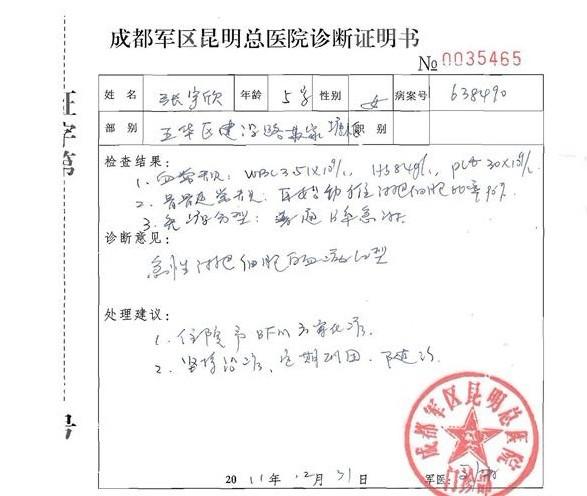 成都军区昆明总医院诊断证明书
№0035465
姓名 张宇欣 年龄 5岁 性别 女 病案号 638490
部别 五华区建设路 职别
检查结果:
1. 血常规: WBC 3.51×10⁹/L, Hb 84g/L, PLt 30×10⁹/L
2. 骨髓
3. 免疫分型: 普通B
诊断意见:
急性淋巴细胞白血病
处理建议:
1. 住院予BFM方案化疗.
2. 坚持治疗、定期
2011年12月31日 军医:
证字第
号
成都军区昆明总医院